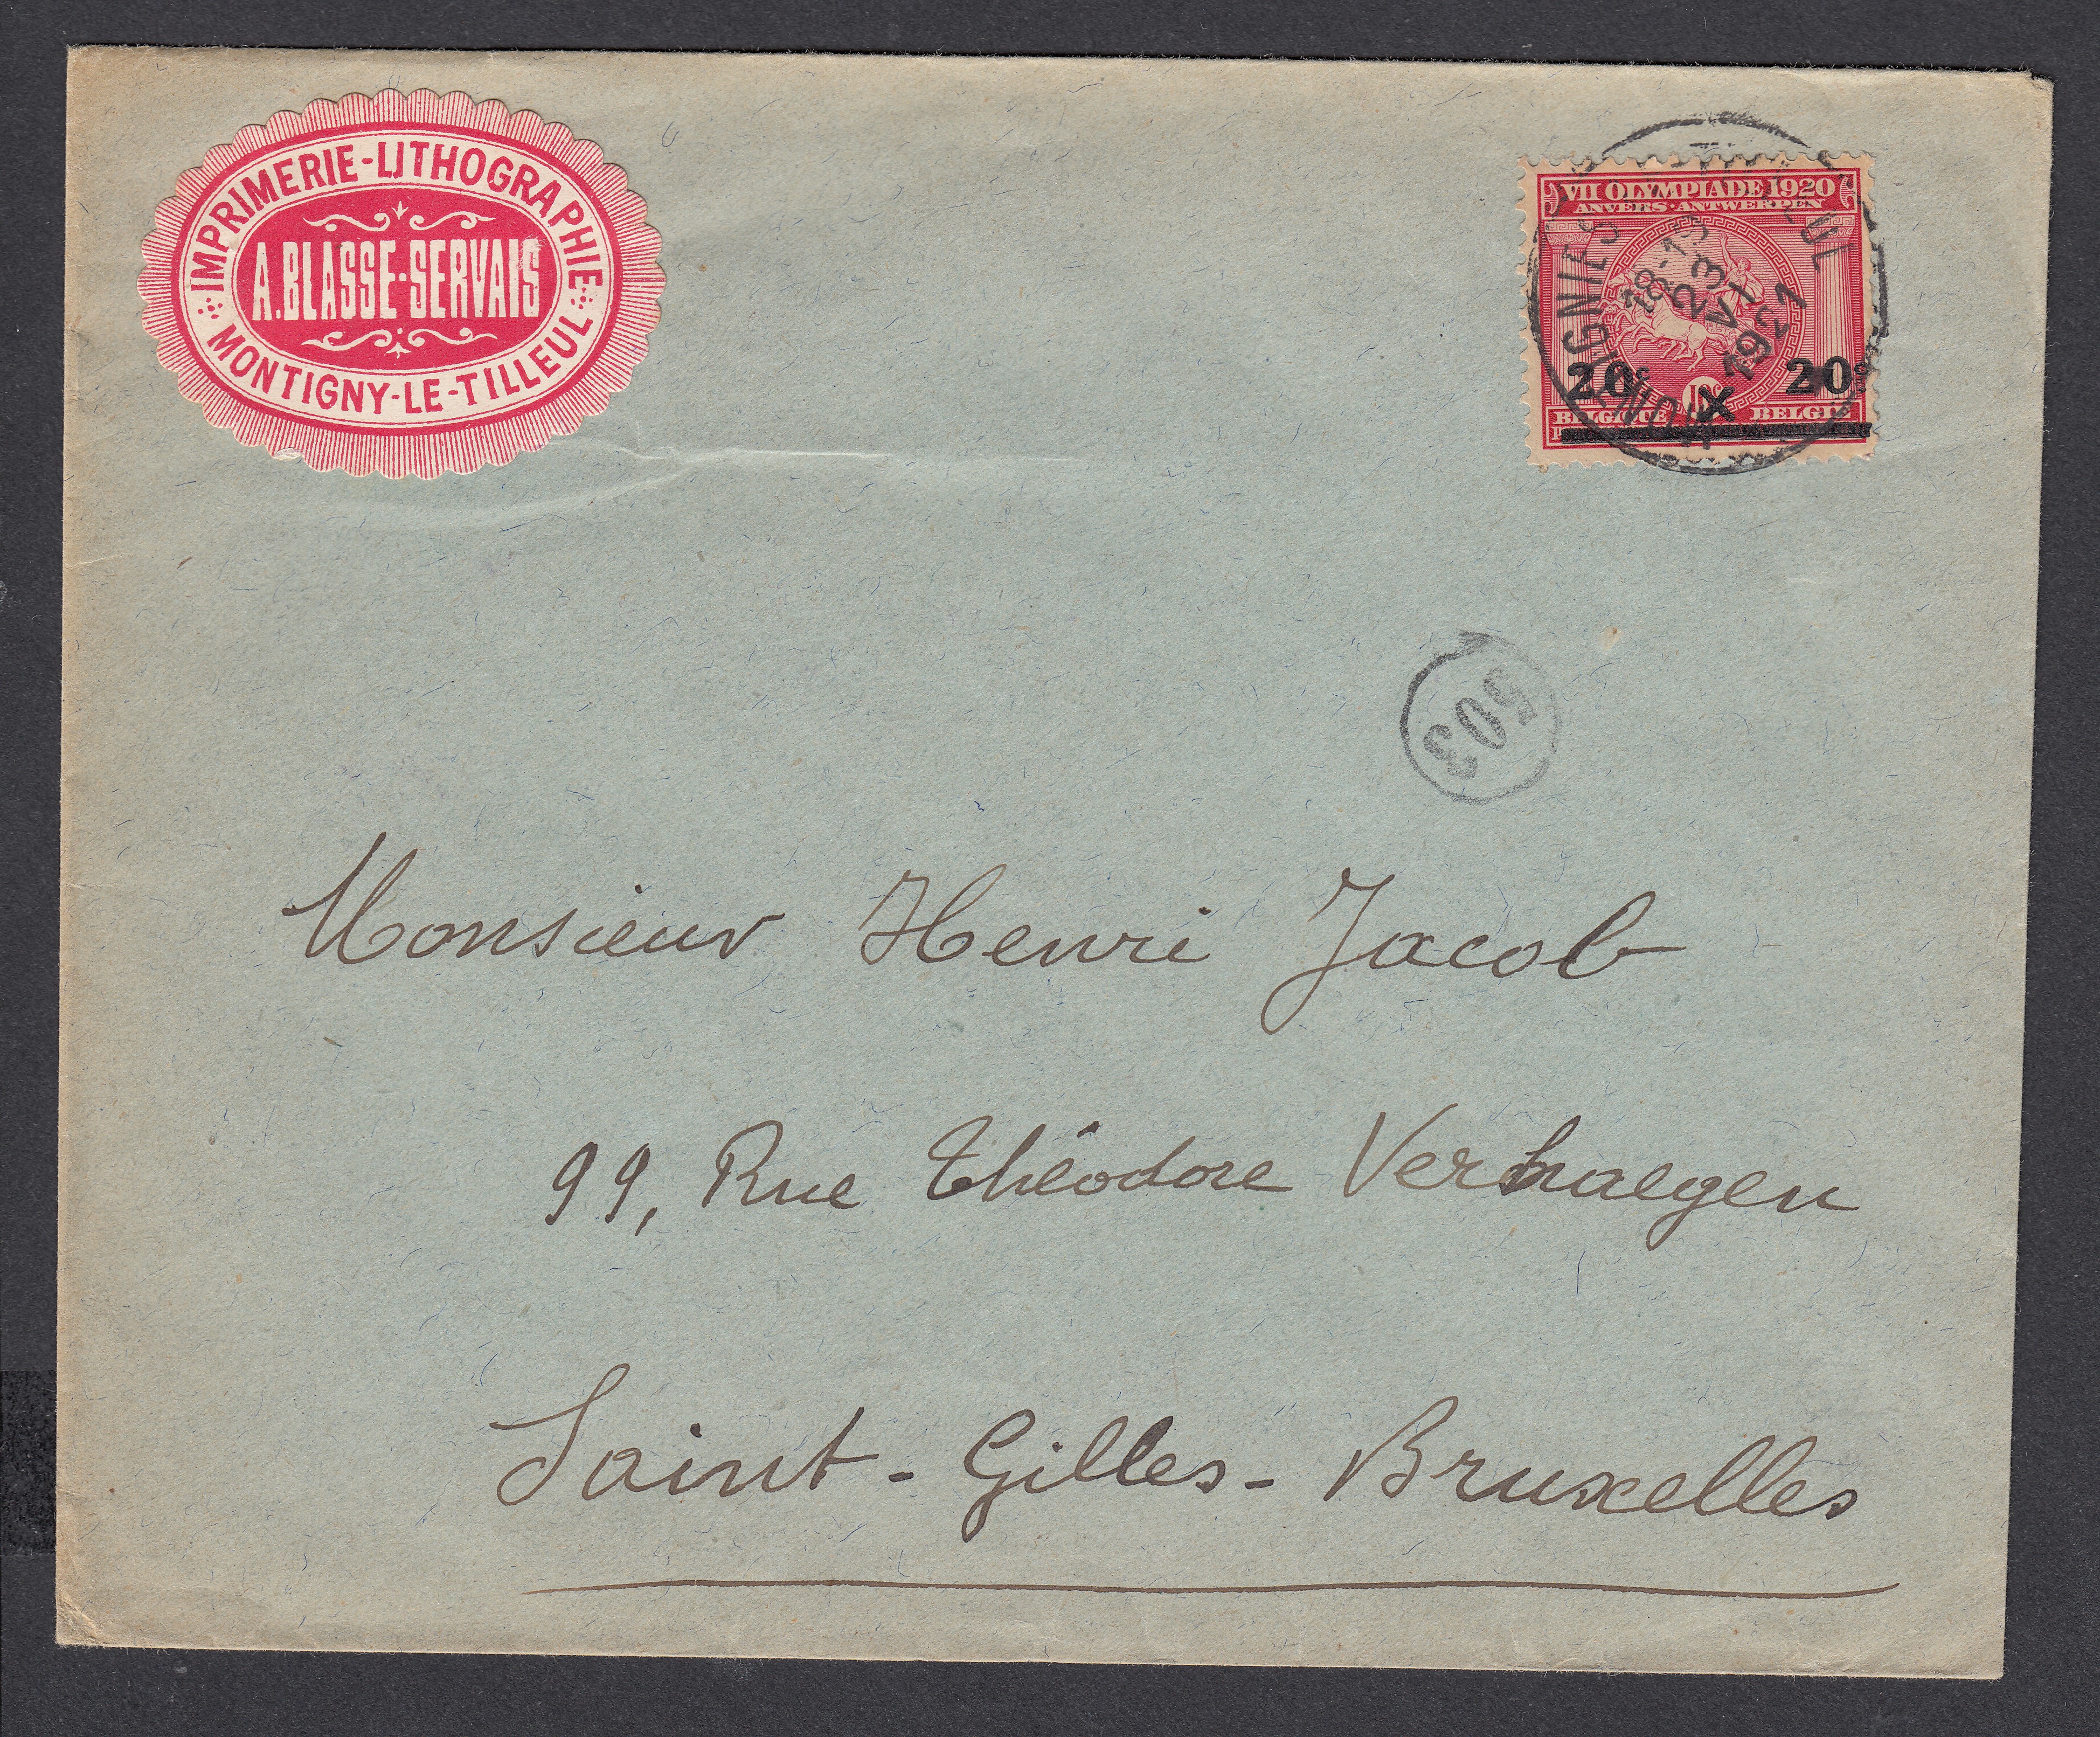 IMPRIMERIE-LITHOGRAPHIE
A. BLASSE-SERVAIS
MONTIGNY-LE-TILLEUL
VII OLYMPIADE 1920
ANVERS·ANTWERPEN
20c x 20c
10c
BELGIQUE BELGIE
18-19
23
VI
1921
503
Monsieur Henri Jacob
99, Rue Théodore Verhaegen
Saint-Gilles-Bruxelles